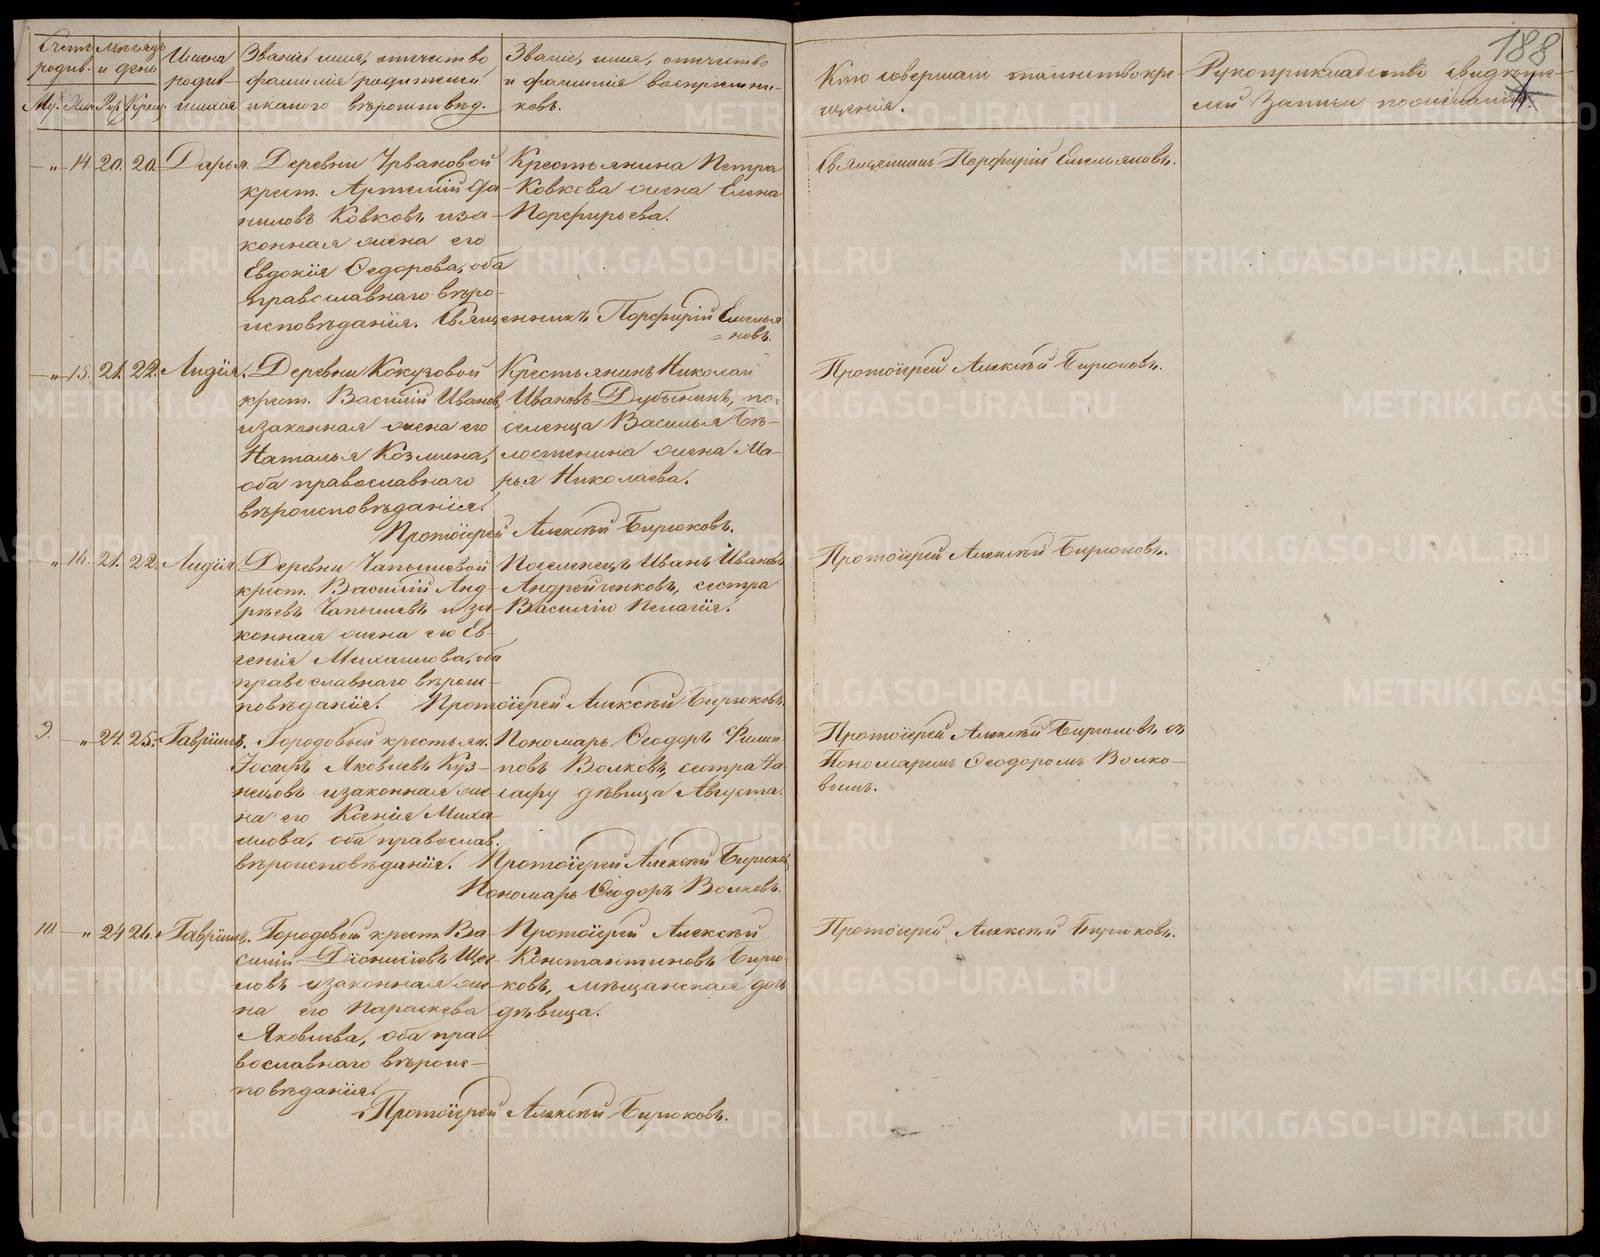 188
Счетъ родив.
Мѣсяцъ и день
Имена родив-
шихся
Званіе, имя, отчество,
фамилія родителей
и какого вѣроисповѣд.
Званіе, имя, отчество
и фамилія воспріемни-
ковъ.
Кто совершалъ таинство кре-
щенія.
Рукоприкладство свидѣте-
лей записи по желанію.
Му. Жен. Рож. Крещ.
" 14 20. 20. Дарья.
Деревни Урвановой
крест. Артемій Да-
ниловъ Ковковъ и за-
конная жена его
Евдокія Ѳедорова, оба
православнаго вѣро-
исповѣданія. Священникъ Порфирій Емелья
новъ.
Крестьянина Петра
Ковкова жена Елена
Порфирьева.
Священникъ Порфирій Емельяновъ.
" 15. 21. 22. Лидія.
Деревни Кокузовой
крест. Василій Ивановъ
и законная жена его
Наталья Козмина,
оба православнаго
вѣроисповѣданія.
Протоіерей Алексѣй Бирюковъ.
Крестьянинъ Николай
Ивановъ Дубынинъ, по-
селенца Василья Бѣ-
лостенина жена Ма-
рья Николаева.
Протоіерей Алексѣй Бирюковъ.
" 16. 21. 22. Лидія
Деревни Чапышевой
крест. Василій Анд-
рѣевъ Чапышевъ и за-
конная жена его Ев-
генія Михаилова, оба
православнаго вѣроис-
повѣданія. Протоіерей Алексѣй Бирюковъ
Поселенецъ Иванъ Ивановъ
Андрейченковъ, сестра
Василію Пелагія.
Протоіерей Алексѣй Бирюковъ.
9. " 24. 25. Гавріилъ.
Городовый крестьян.
Іосафъ Яковлевъ Куз-
нецовъ и законная же-
на его Ксенія Миха-
илова, оба православ.
вѣроисповѣданія. Протоіерей Алексѣй Бирюковъ
Пономарь Ѳеодоръ Волковъ.
Пономарь Ѳеодоръ Филип-
повъ Волковъ, сестра Іо-
сафу дѣвица Августа.
Протоіерей Алексѣй Бирюковъ съ
Пономаремъ Ѳеодоромъ Волко-
вымъ.
10. " 24 26. Гавріилъ.
Городовый крест. Ва-
силій Діонисіевъ Щег-
ловъ и законная же-
на его Параскева
Яковлева, оба пра-
вославнаго вѣроис-
повѣданія.
Протоіерей Алексѣй Бирюковъ.
Протоіерей Алексѣй
Константиновъ Бирю-
ковъ, мѣщанская дочь
дѣвица.
Протоіерей Алексѣй Бирюковъ.
METRIKI.GASO-URAL.RU